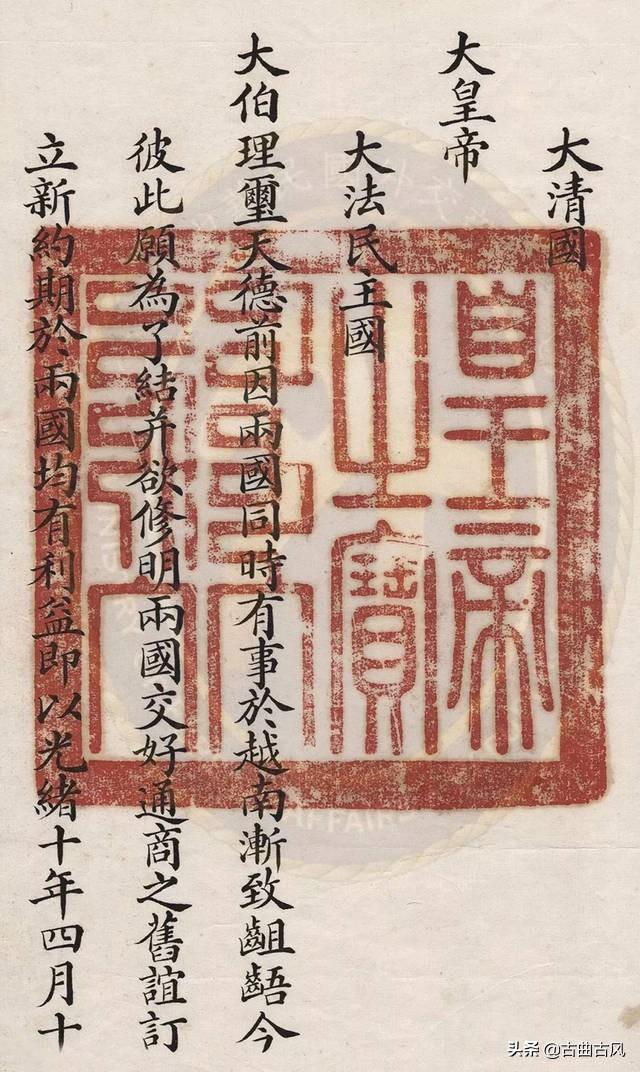 大清國
大皇帝
大法民主國
大伯理璽天德前因兩國同時有事於越南漸致齟齬今
彼此願為了結并欲修明兩國交好通商之舊誼訂
立新約期於兩國均有利益即以光緒十年四月十
皇帝
之寶
AFFAIRS
头条 @古曲古风